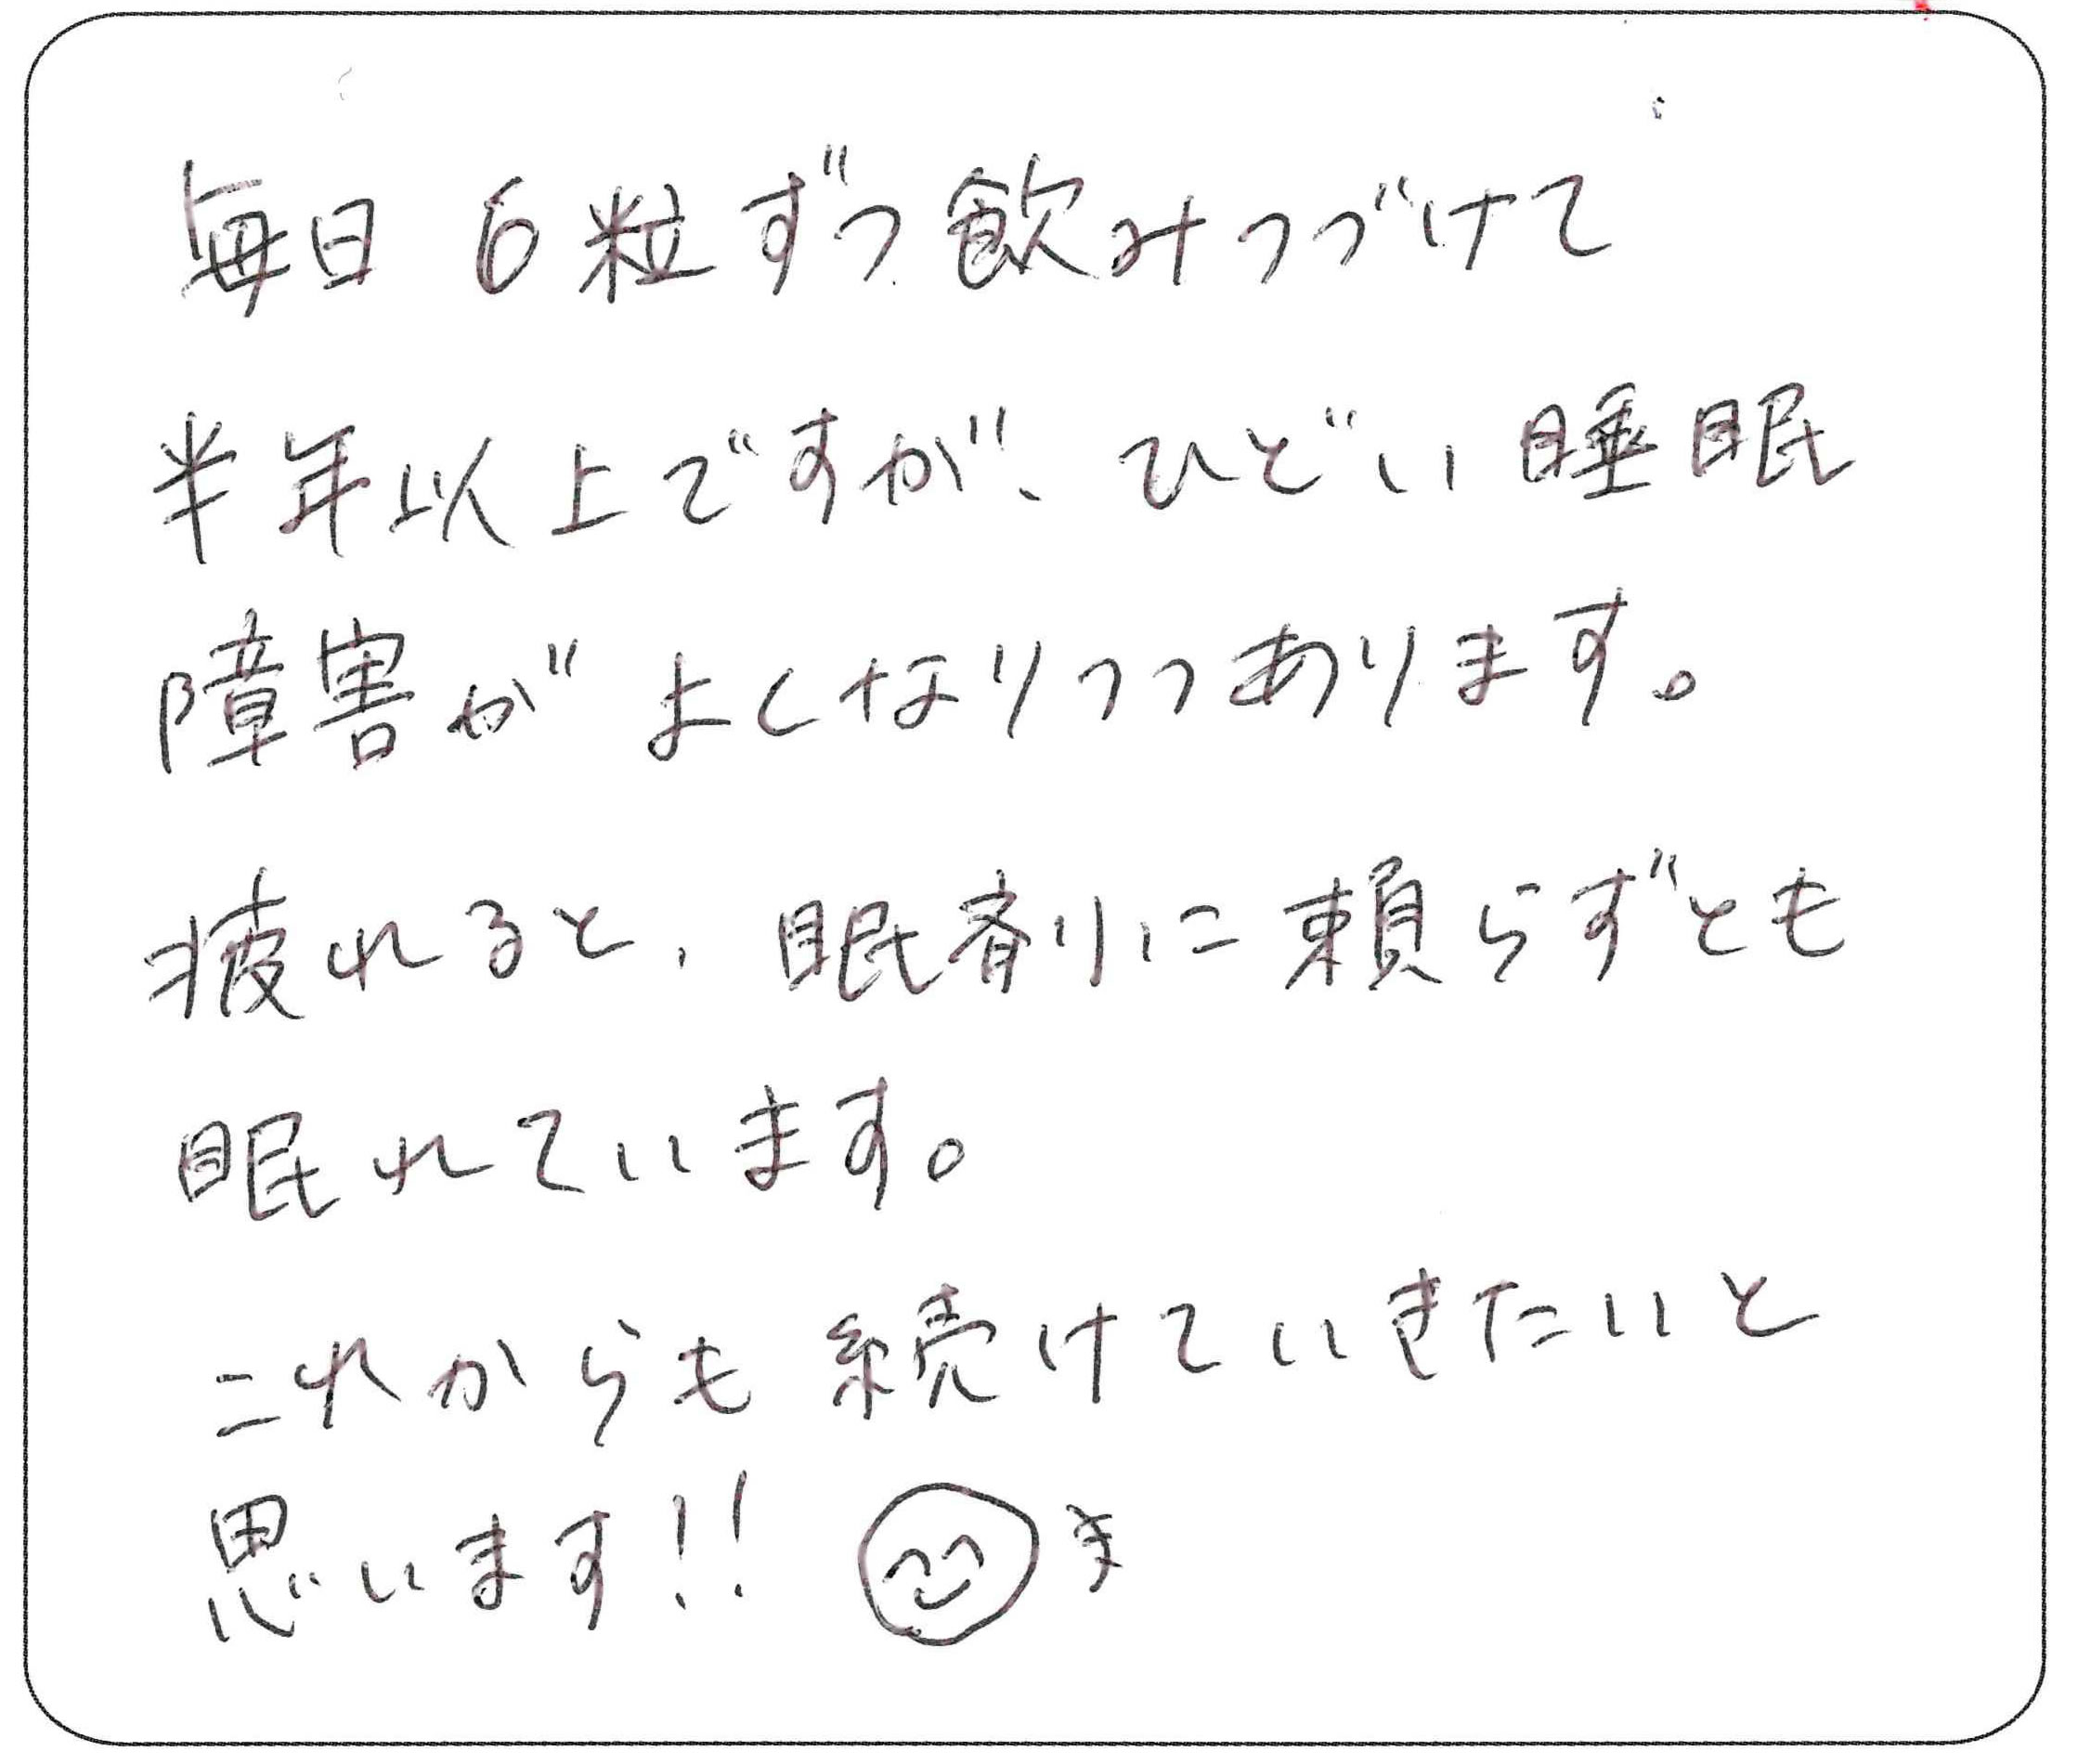 毎日6粒ずつ飲みつづけて
半年以上ですが、ひどい睡眠
障害がよくなりつつあります。
疲れると、眠剤に頼らずとも
眠れています。
これからも続けていきたいと
思います!!